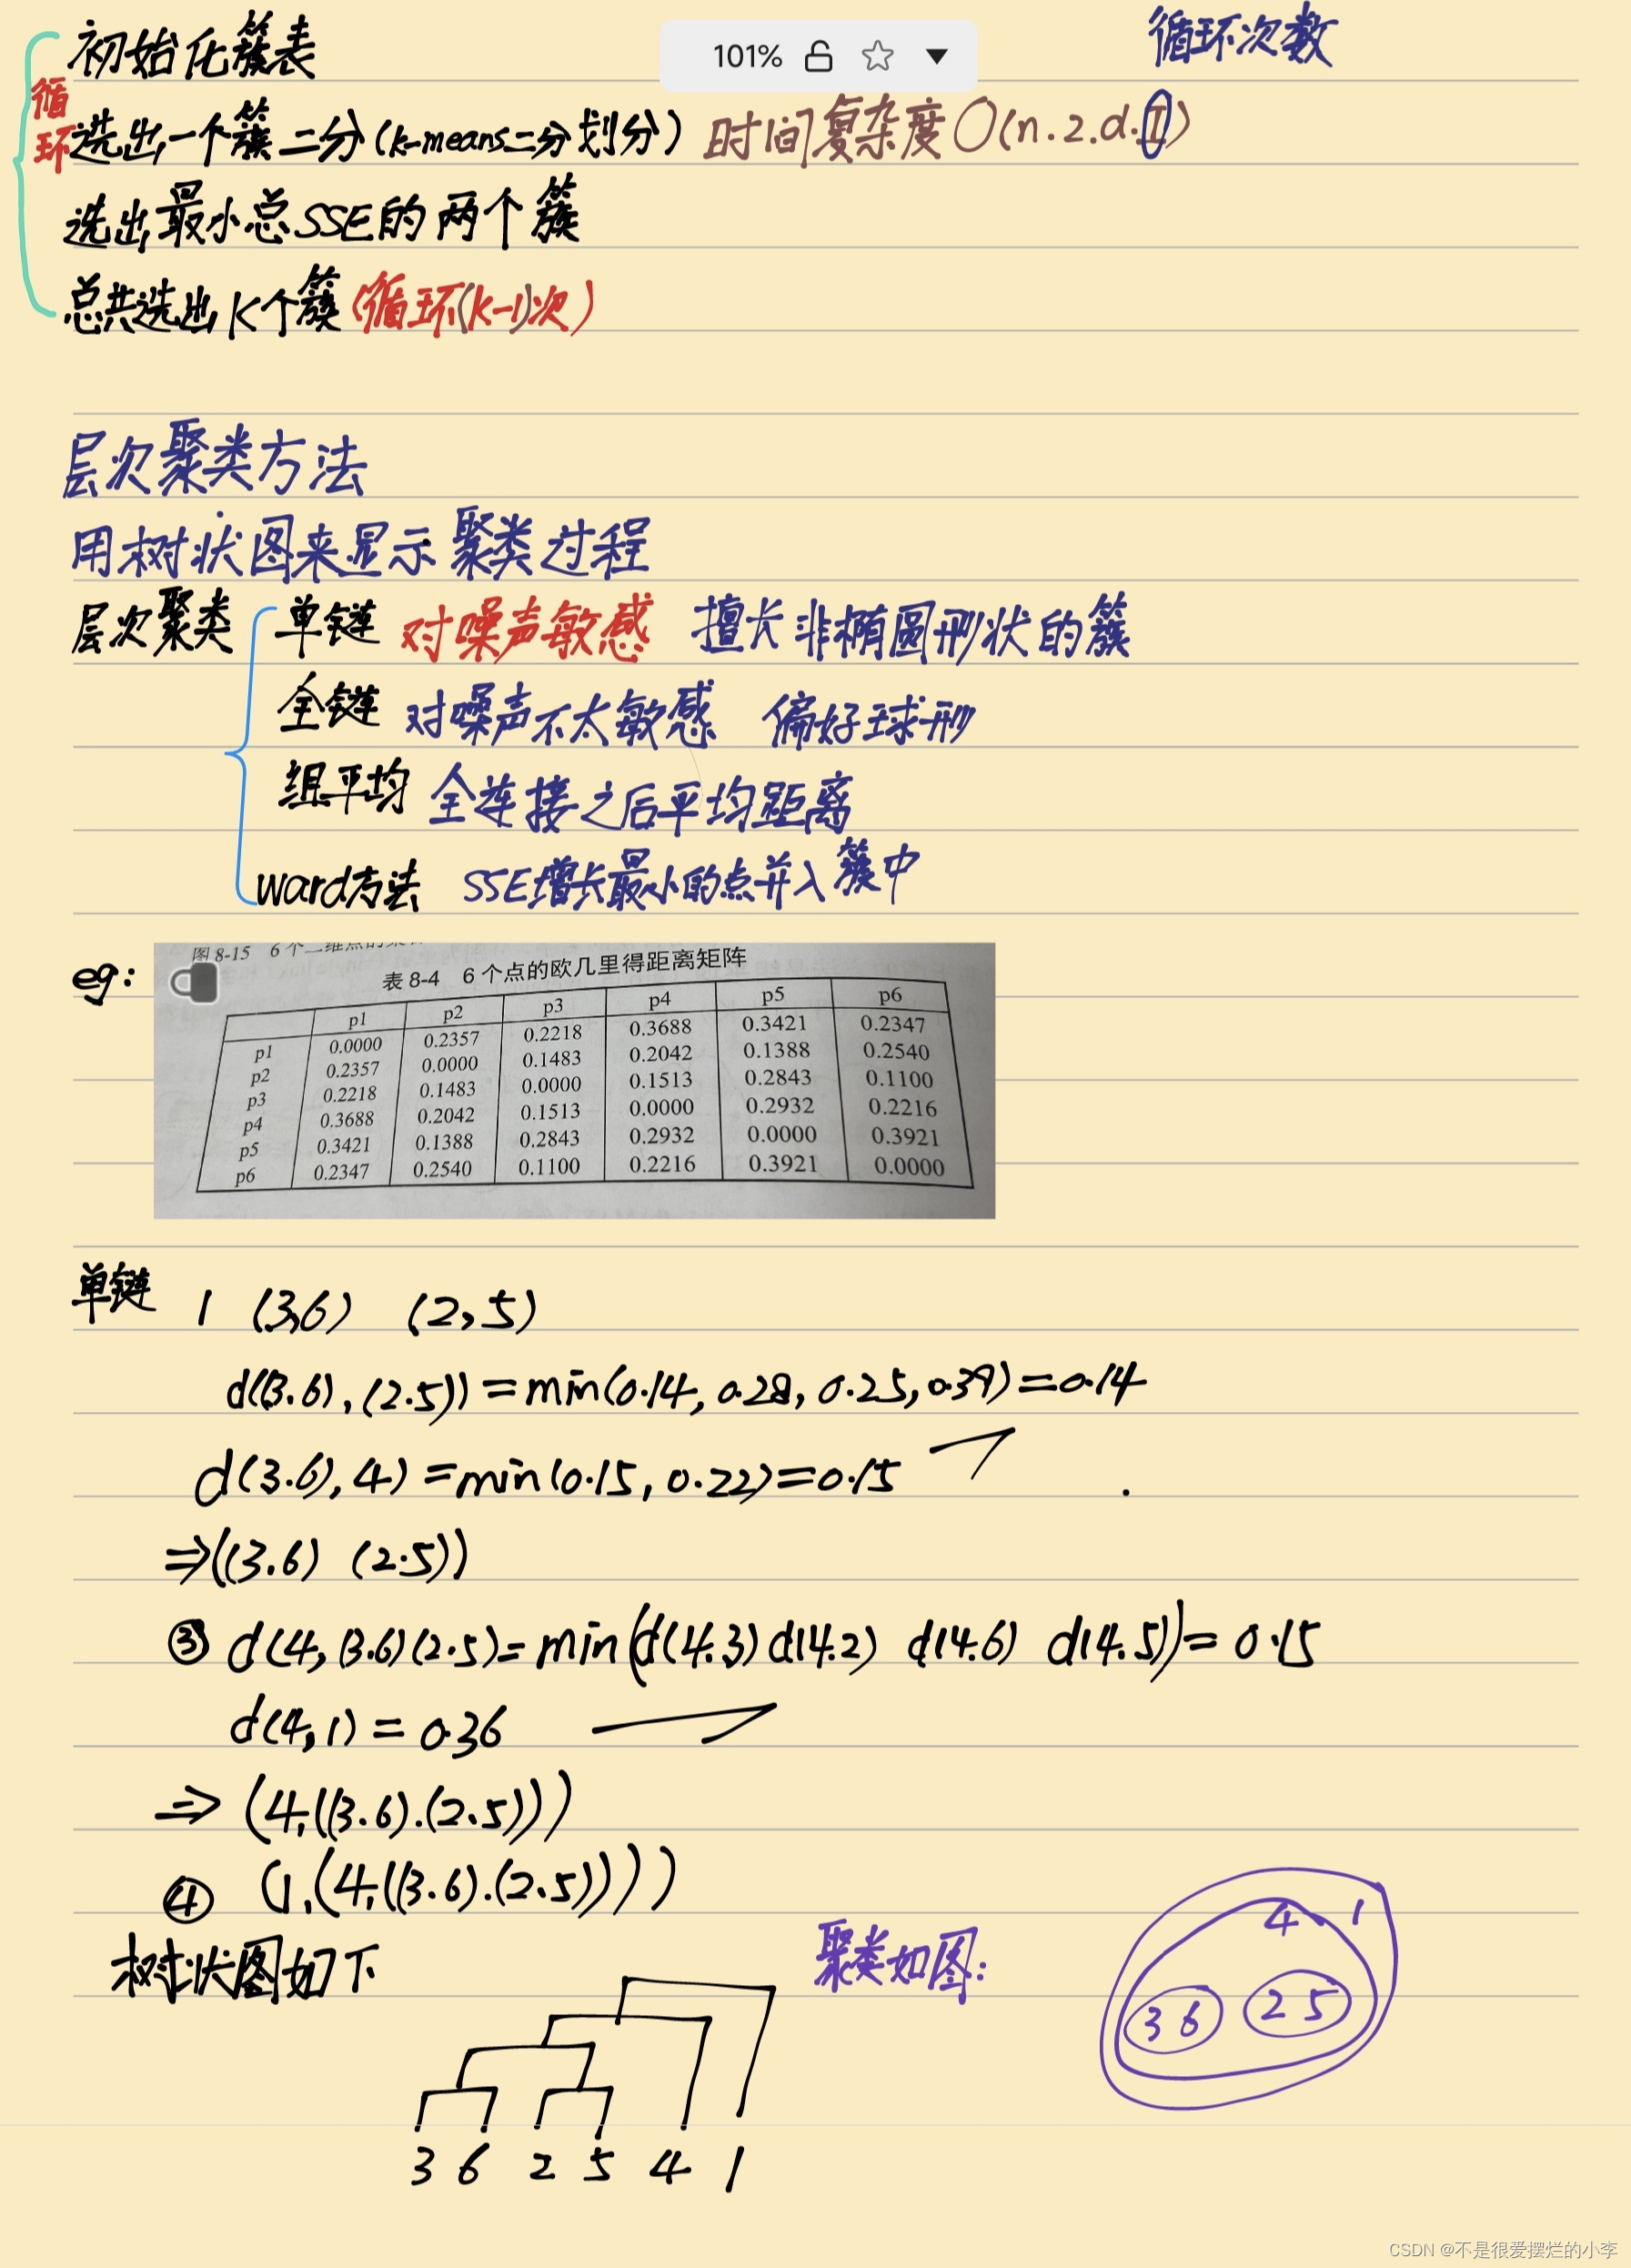 初始化簇表
101%
循环次数
循环
选出一个簇二分(k-means二分划分) 时间复杂度O(n.2.d.I)
选出最小总SSE的两个簇
总共选出K个簇(循环(k-1)次)
层次聚类方法
用树状图来显示聚类过程
层次聚类 单链 对噪声敏感 擅长非椭圆形状的簇
全链 对噪声不太敏感 偏好球形
组平均 全连接之后平均距离
ward方法 SSE增长最小的点并入簇中
eg:
图 8-15 6个二维点的
表 8-4 6 个点的欧几里得距离矩阵
p1 p2 p3 p4 p5 p6
p1 0.0000 0.2357 0.2218 0.3688 0.3421 0.2347
p2 0.2357 0.0000 0.1483 0.2042 0.1388 0.2540
p3 0.2218 0.1483 0.0000 0.1513 0.2843 0.1100
p4 0.3688 0.2042 0.1513 0.0000 0.2932 0.2216
p5 0.3421 0.1388 0.2843 0.2932 0.0000 0.3921
p6 0.2347 0.2540 0.1100 0.2216 0.3921 0.0000
单链 1 (3,6) (2,5)
d((3.6),(2.5))=min(0.14,0.28,0.25,0.39)=0.14
d(3.6),4)=min(0.15,0.22)=0.15
⇒((3.6) (2.5))
③ d(4,(3.6)(2.5)=min(d(4.3)d(4.2) d(4.6) d(4.5))=0.15
d(4,1)=0.36
⇒(4,((3.6).(2.5)))
④ (1,(4,((3.6).(2.5))))
树状图如下
聚类如图:
4 1
3 6 2 5
3 6 2 5 4 1
CSDN @不是很爱摆烂的小李